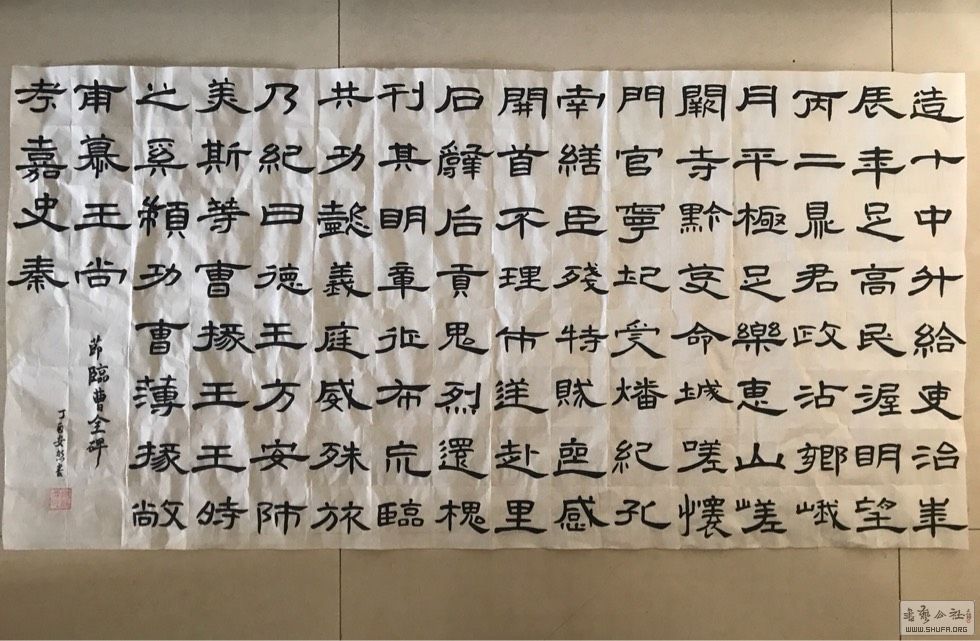 造十中升給吏治華
辰年足高民渥明望
丙二鼎君政沾鄉峨
月平極足樂惠山嵯
闕寺黔芟命城嗟懷
門官寧圮受燔紀孔
南繕臣殘特賊喪感
開首不理市逆赴里
石辭后貢鬼烈還槐
刊其明章征布荒臨
共功懿義庭威殊旅
乃紀曰德王方安師
美斯等曹掾王王時
之奚顓功曹薄掾敞
甫慕王尚
考嘉史秦
節臨曹全碑
丁酉書
書藝公社
WWW.SHUFA.ORG